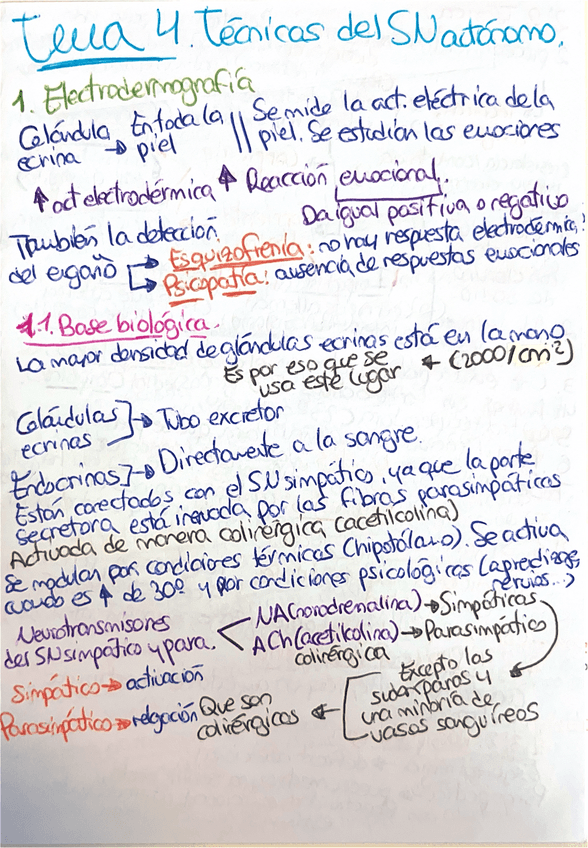 Tema 4. Técnicas del SN autónomo.
1. Electrodermografía
Glándula ecrina → En toda la piel || Se mide la act. eléctrica de la piel. Se estudian las emociones
↑ act electrodérmica ↑ Reacción emocional.
Da igual positiva o negativo
También la detección del engaño
→ Esquizofrenia: no hay respuesta electrodermica:
→ Psicopatía: ausencia de respuestas emocionales
1.1. Base biológica.
La mayor densidad de glándulas ecrinas está en la mano
Es por eso que se usa este lugar ← (2000/cm²)
Glándulas ecrinas] → Tubo excretor
Endocrinas] → Directamente a la sangre.
Están conectados con el SN simpático, ya que la parte
secretora está inervada por las fibras parasimpáticas
Activada de manera colinérgica (acetilcolina)
Se modulan por condiciones térmicas (hipotálamo). Se activa
cuando es ↑ de 30º y por condiciones psicológicas (aprendizaje,
nervios...)
Neurotransmisores del SN simpático y para.
NA (noradrenalina) → Simpáticas
ACh (acetilcolina) → Parasimpático
colinérgica
Simpático → activación
Parasimpático → relajación
Excepto las sudoríparas y una minoría de vasos sanguíneos
Que son colinérgicos ←